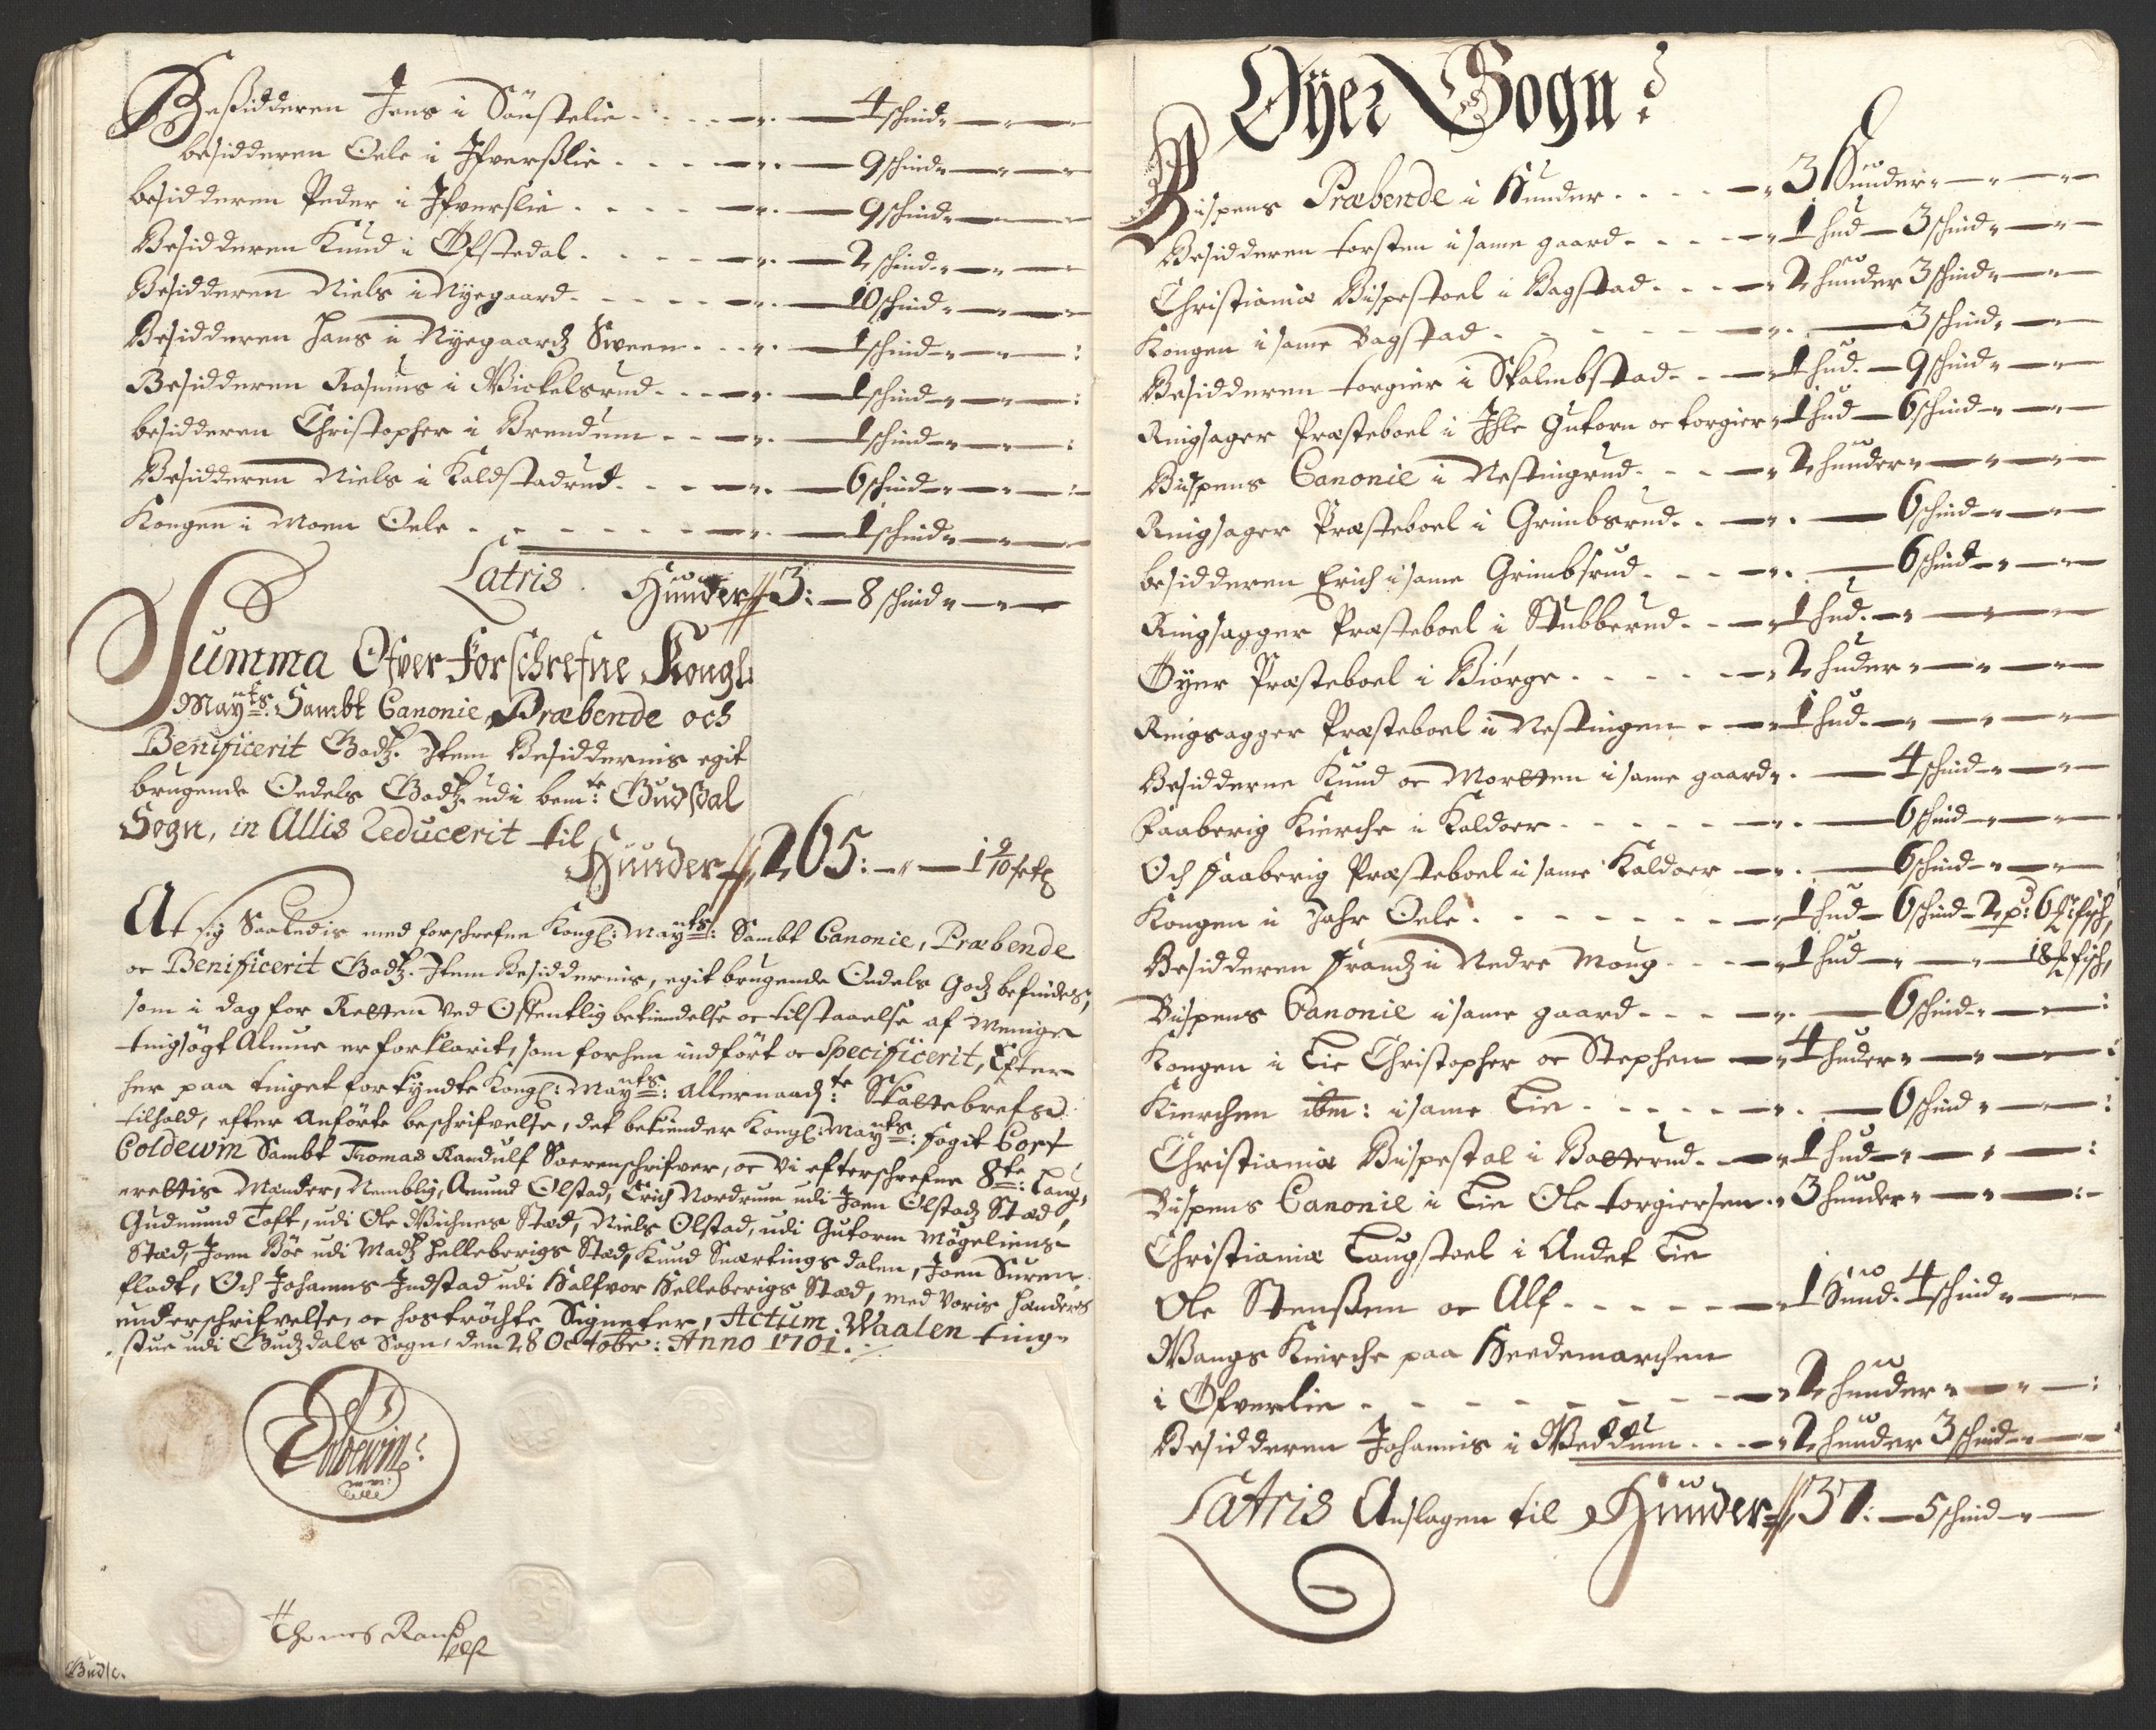 Beßidderen Jens i Sönstelie - - - - 4 schind
besidderen Oele i Ifverßlie - - - - 9 schind
besidderen Peder i Ifverslie - - - - 9 schind
Besidderen Knud i Ofstedal - - - - 2 schind
Besidderen Niels i Nyegaard - - - - 10 schind
Besidderen Hans i Nyegaardz Sveen - - - 1 schind
Besidderen Rasmus i Wickelsrud - - - 1 schind
besidderen Christopher i Brendum - - - 1 schind
Besidderen Niels i Kaldstadrud - - - 6 schind
Kongen i Moen Oele - - - - 1 schind
Latris. Hunder // 3: — 8 schind
Summa Ofver forschrefne Kongl:
Mayts: Sambt Canonie Præbende och
Benificerit Godz. Item Besiddernis egit
brugende Oedels Godz. udi bemte: Gudßdal
Sogn, in Allis Reducerit til
Hunder // 265: — 1 9/10 setg
At sig Saaledis med forschrefne Kongl: Mayts: Sambt Canonie, Præbende
oc Benificerit Godz. Item Besiddernis, egit brugende Oedels Godz befindes,
som i dag for Retten ved Offentlig bekiendelse oc tilstaaelse af Menige
tingsögt Almue er forklarit, som forhen indfört oc Specificerit, Efter
her paa tinget forkyndte Kongl: Mayts: allernaadte: Skattebrefs
tilhold, efter anförte beschrifvelse, det bekiender Kongl: Mayts: fogit Cort
Coldewin Sambt Thomas Randulf Soerenschrifver, oc vi efterschrefne 8te: Laug-
rettis Mænder, Nemblig, Amund Olstad, Erich Nordrum udi Joen Olstadz Stæd,
Gudmund Toft, udi Ole Wichnes Stæd, Niels Olstad, udi Guttorm Mögeliens
Stæd, Joen Böe udi Madz Helleberigs Stæd, Knud Snertingsdalen, Joen Suren
fladt, Och Johannes Indstad udi Halfvor Helleberigs Stæd, med voris hænders
underschrifvelse, oc hoströchte Signeter, Actum Waalen ting-
stue udi Gudzdals Sogn, den 28 Octobr: Anno 1701.
Coldewin
mm:
Thomes Randulf
Budle.
Øÿer Sogn:
Bispens Præbende i Hunder - - - 3 Hunder
Besidderen torsten i same gaard - - - 1 hud — 3 schind
Christiania Bispestoel i Bagstad - - - 2 hunder 3 schind
Kongen i same Bagstad - - - - 3 schind
Besidderen torgier i Skalmbstad - - 1 hud — 9 schind
Ringsager Præsteboel i Ihle Gutorn oc torgier 1 hud — 6 schind
Bispens Canonie i Nestingrud - - - 2 hunder
Ringsager Præsteboel i Grimbsrud - - - 6 schind
besidderen Erich i same Grimbsrud - - - 6 schind
Ringsagger Præsteboel i Stubberud - - 1 hud
Øyer Præsteboel i Biörge - - - - 2 huder
Ringsagger Præsteboel i Nestingen - - 1 hud
Besidderne Knud oc Morten i same gaard - 4 schind
Faaberig Kierche i Kaldoer - - - - 6 schind
Och Faaberig Præsteboel i same Kaldoer - 6 schind
Kongen i Jahr Oele - - - - 1 hud — 6 schind — 2 pd: 6 mr: fisch,
Besidderen Frandz i Nedre Moug - - 1 hud — 18 mr fisch,
Bispens Canonie i same gaard - - - 6 schind
Kongen i Lie Christopher oc Stephen - 4 huder
Kierchen ibm: i same Lie - - - - 6 schind
Christiania Bispestol i Batterud - - 1 hud
Bispens Canonie i Lie Ole torgiersen - 3 hunder
Christiania Laugstoel i Andet Lie
Ole Stenßen oc Alf - - - - 1 Hund. 4 schind
Wangs Kierche paa Heedemarchen
i Ofverlie - - - - - 2 hunder
Besidderen Johannis i Weddum - - - 2 hunder 3 schind
Latris Anslagen til Hunder // 37: — 5 schind